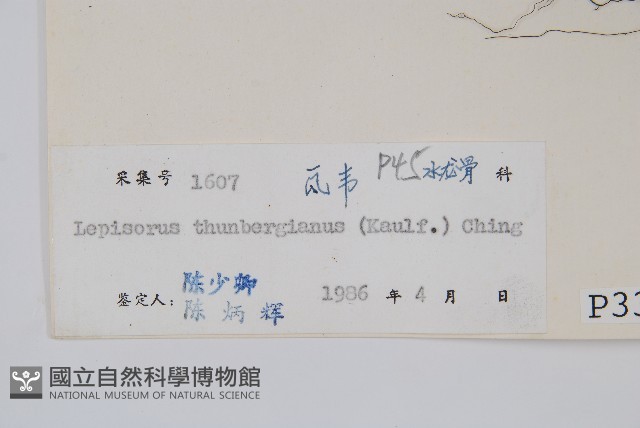 采集号 1607 瓦韦 P45 水龙骨 科
Lepisorus thunbergianus (Kaulf.) Ching
鉴定人: 陈少卿
陈炳辉
1986 年 4 月 日
P33
國立自然科學博物館
NATIONAL MUSEUM OF NATURAL SCIENCE